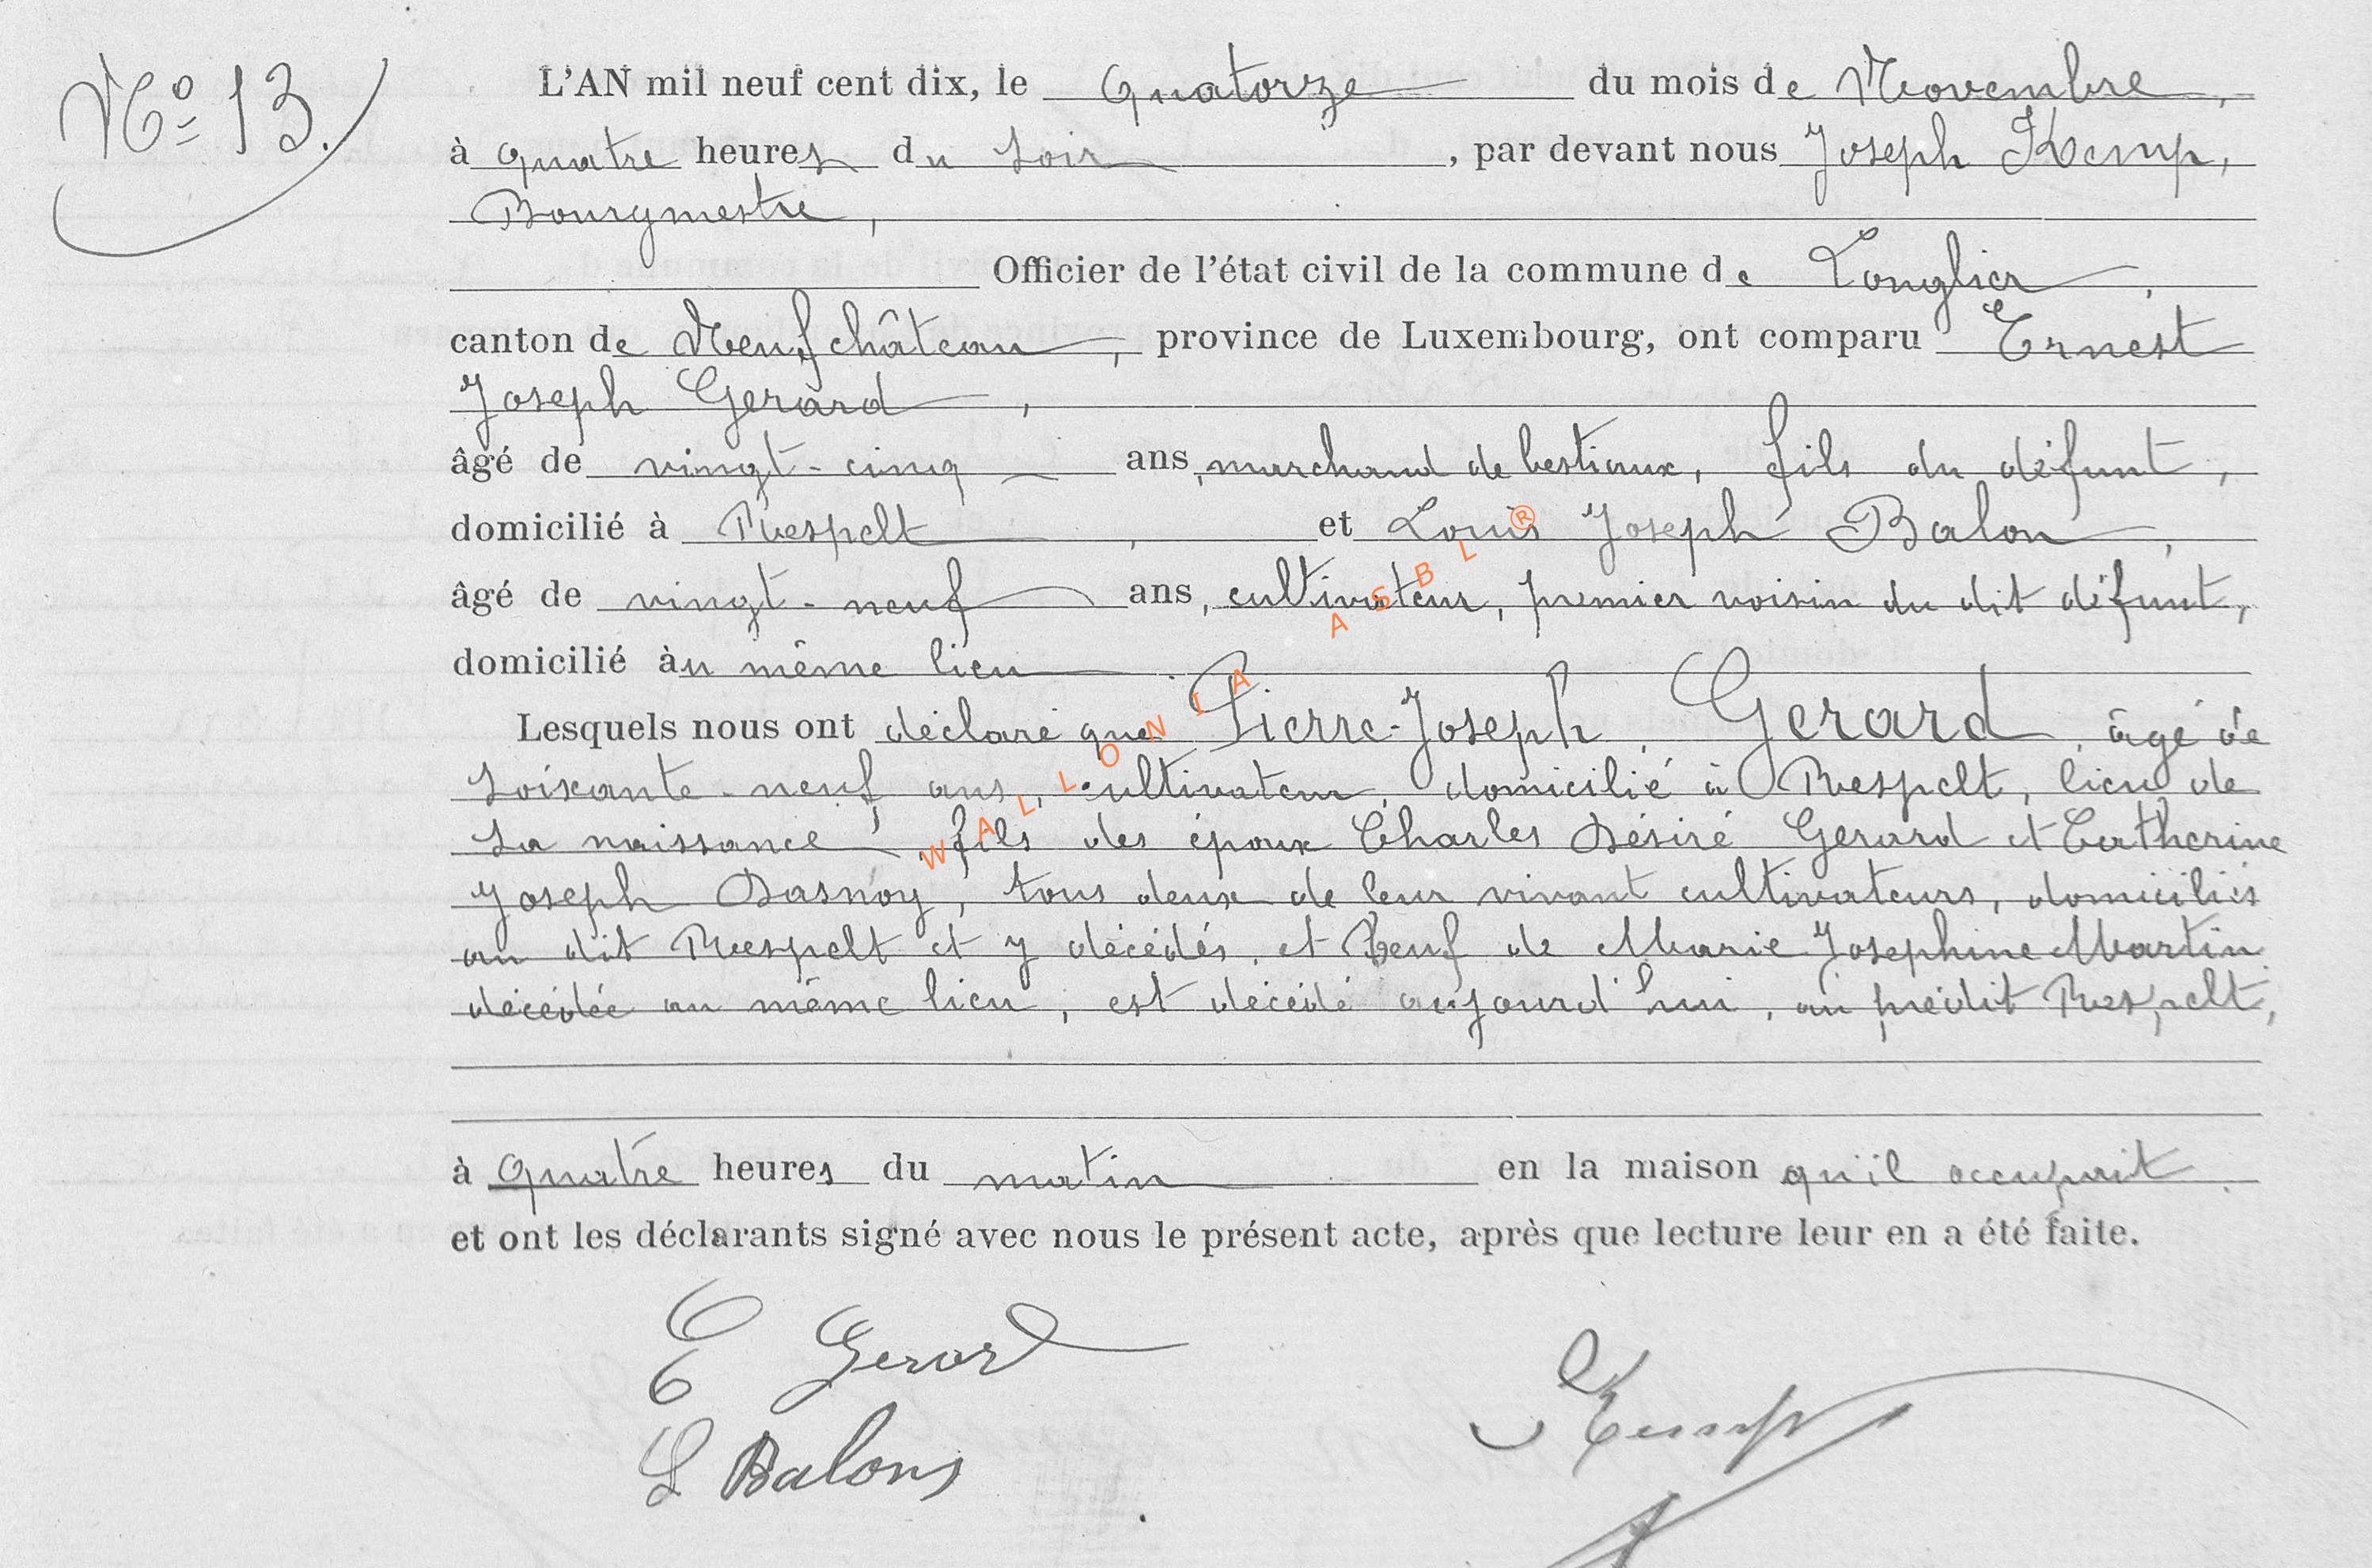 Nº 13.
L'AN mil neuf cent dix, le Quatorze du mois de Novembre,
à quatre heures du soir, par devant nous Joseph Kemp,
Bourgmestre,
Officier de l'état civil de la commune de Longlier,
canton de Neufchâteau, province de Luxembourg, ont comparu Ernest
Joseph Gerard,
âgé de vingt-cinq ans, marchand de bestiaux, fils du défunt,
domicilié à Respelt, et Louis Joseph Balon,
âgé de vingt-neuf ans, cultivateur, premier voisin du dit défunt,
domicilié àu même lieu.
Lesquels nous ont déclaré que Pierre-Joseph Gerard, âgé de
soixante-neuf ans, cultivateur, domicilié à Respelt, lieu de
sa naissance, fils des époux Charles Désiré Gerard et Catherine
Joseph Dasnoy, tous deux de leur vivant cultivateurs, domiciliés
au dit Respelt et y décédés, et veuf de Marie Josephine Martin
décédée au même lieu, est décédé aujourd'hui, au prédit Respelt,
à Quatre heures du matin en la maison qu'il occupait.
et ont les déclarants signé avec nous le présent acte, après que lecture leur en a été faite.
E Gerard
L Balon
Kemp
WALLONIA ASBL ®